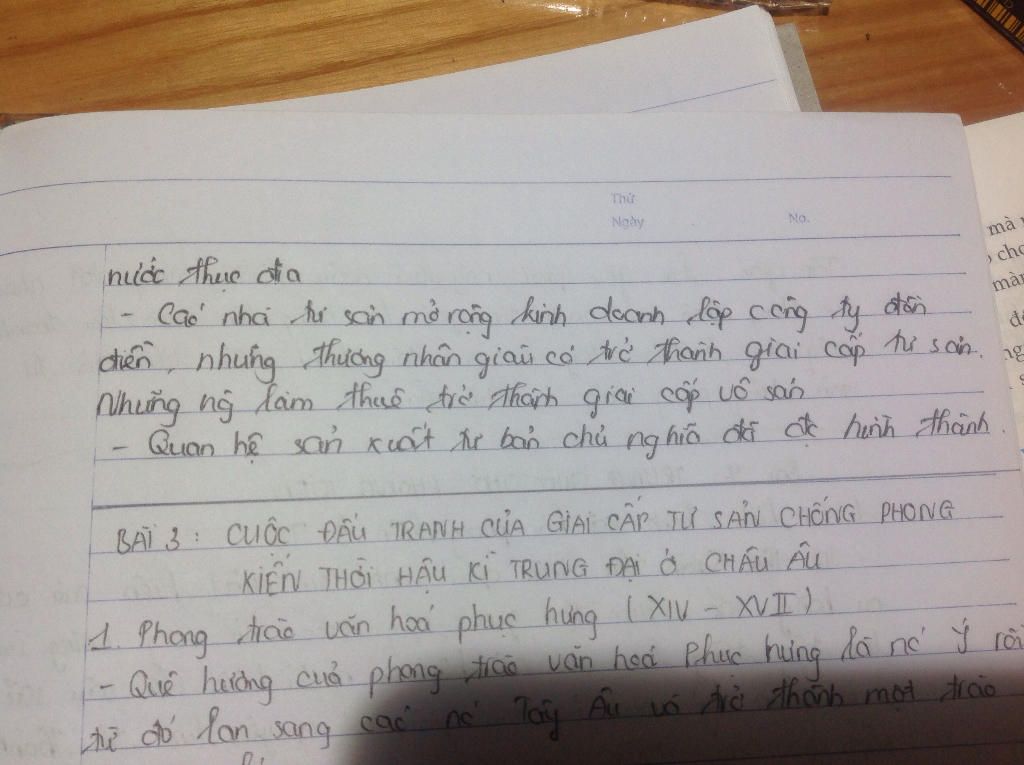 Thứ
Ngày No.
nước thực địa
- Các nhà tư sản mở rộng kinh doanh lập công ty đồn
điền, những thương nhân giàu có trở thành giai cấp tư sản.
Những ng làm thuê trở thành giai cấp vô sản
- Quan hệ sản xuất tư bản chủ nghĩa đã đc hình thành.
BÀI 3: CUỘC ĐẤU TRANH CỦA GIAI CẤP TƯ SẢN CHỐNG PHONG
KIẾN THỜI HẬU KÌ TRUNG ĐẠI Ở CHÂU ÂU
1. Phong trào văn hoá phục hưng (XIV - XVII)
- Quê hương của phong trào văn hoá Phục hưng là nc Ý rồi
từ đó lan sang các nc Tây Âu và trở thành một trào
mà
cho